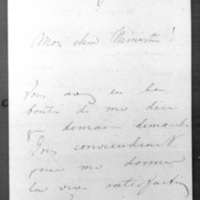 Mon cher Ministre!
Vous avez eu la
bonté de me dire
demain dimanche
Vous conviendrait
pour me donner
la vive satisfaction